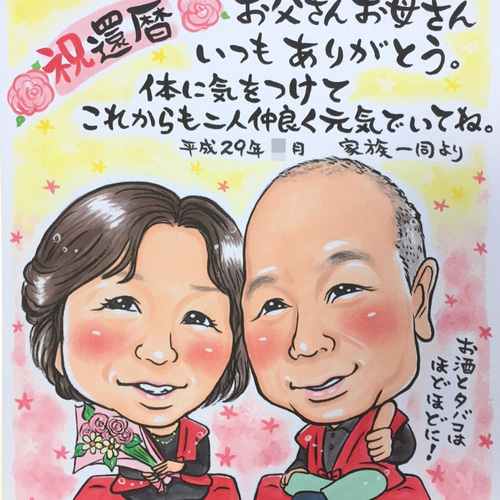 祝還暦
お父さんお母さん
いつもありがとう。
体に気をつけて
これからも二人仲良く元気でいてね。
平成29年 月 家族一同より
お酒とタバコは
ほどほどに!